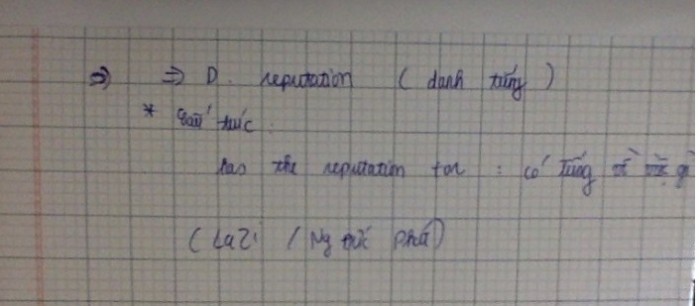 ⇒ ⇒ D. reputation ( danh tiếng )
* cấu trúc :
has the reputation for : có tiếng về việc gì
( Lazi / Ng Đức Phát)